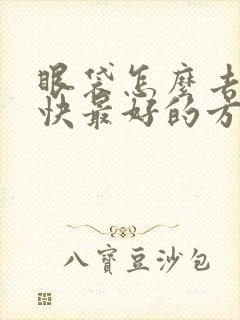 眼袋怎麼去
快最好的方
八寶豆沙包